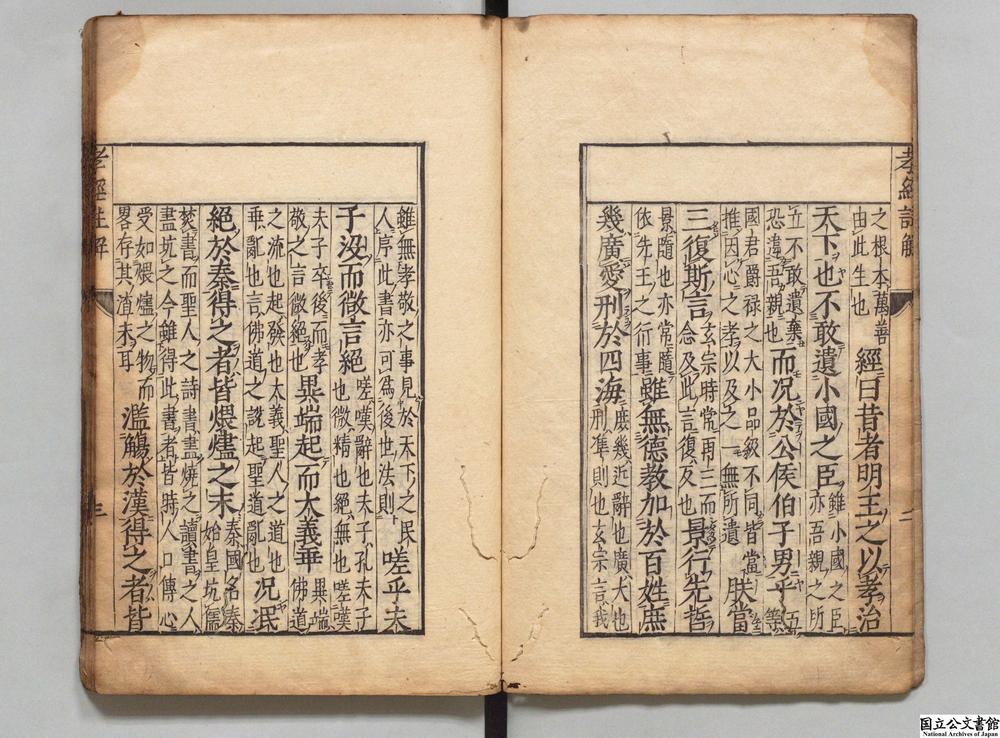 孝經註解
二
之根本萬善
由此生也
經曰昔者明王之以孝治
天下也不敢遺小國之臣
雖小國之臣
亦吾親之所
立不敢遺棄
恐違吾親也
而况於公侯伯子男乎
五
等
國君爵禄之大小品級不同皆當
推因心之孝以及之一無所遺
朕當
三復斯言
玄宗時常雨三而
念及此言復反也
景行先哲
景隨也亦常隨
依先王之行事
雖無德教加於百姓庶
幾廣愛刑於四海
庶幾近辭也廣大也
刑准則也玄宗言我
雖無孝敬之事見於天下之民
人序此書亦可為後世法則
嗟乎夫
子没而微言絶
嗟嘆辭也夫子孔夫子
也微精也絶無也嗟嘆
夫子卒後而孝
敬之言微絶也
異端起而大義乖
異端
佛道
之流也起發也大義聖人之道也
乖亂也言佛道之說起聖道亂也
况泯
絶於秦得之者皆煨燼之末
秦國名秦
始皇坑儒
焚書而聖人之詩書盡燒之讀書之人
盡坑之今雖得此書者皆時人口傳心
受如煨燼之物而
畧存其渣末耳
濫觴於漢得之者皆
孝經註解
三
国立公文書館
National Archives of Japan